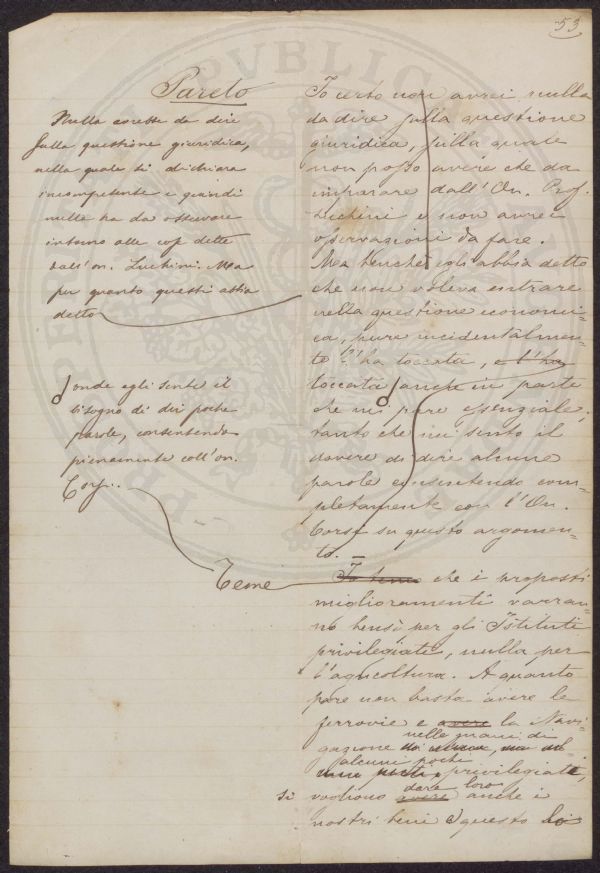 53
Pareto
Nulla avrebbe da dire
sulla questione giuridica,
nella quale si dichiara
incompetente e quindi
nulla ha da osservare
intorno alle cose dette
dall'on. Luchini. Ma
per quanto questi abbia
detto
onde egli sente il
bisogno di dir poche
parole, consentendo
pienamente coll'on.
Corsi..
Teme
Io certo non avrei nulla
da dire sulla questione
giuridica, sulla quale
non posso avere che da
imparare dall'On. Prof.
Luchini e non avrei
osservazioni da fare.
Ma benchè egli abbia detto
che non voleva entrare
nella questione economi=
ca, pure incidentalmen=
te l'ha toccata, e l'ha
toccata anche in parte
che mi pare essenziale,
tanto che mi sento il
dovere di dire alcune
parole consentendo com=
pletamente con l'On.
Corsi su questo argomen=
to. –
Io temo che i proposti
miglioramenti varran=
no bensì per gli Istituti
privilegiati, nulla per
l'agricoltura. A quanto
pare non basta avere le
ferrovie e avere la Navi=
nelle mani di
gazione
alcuni pochi
privilegiati,
dare loro
si vogliono avere anche i
nostri beni e questo